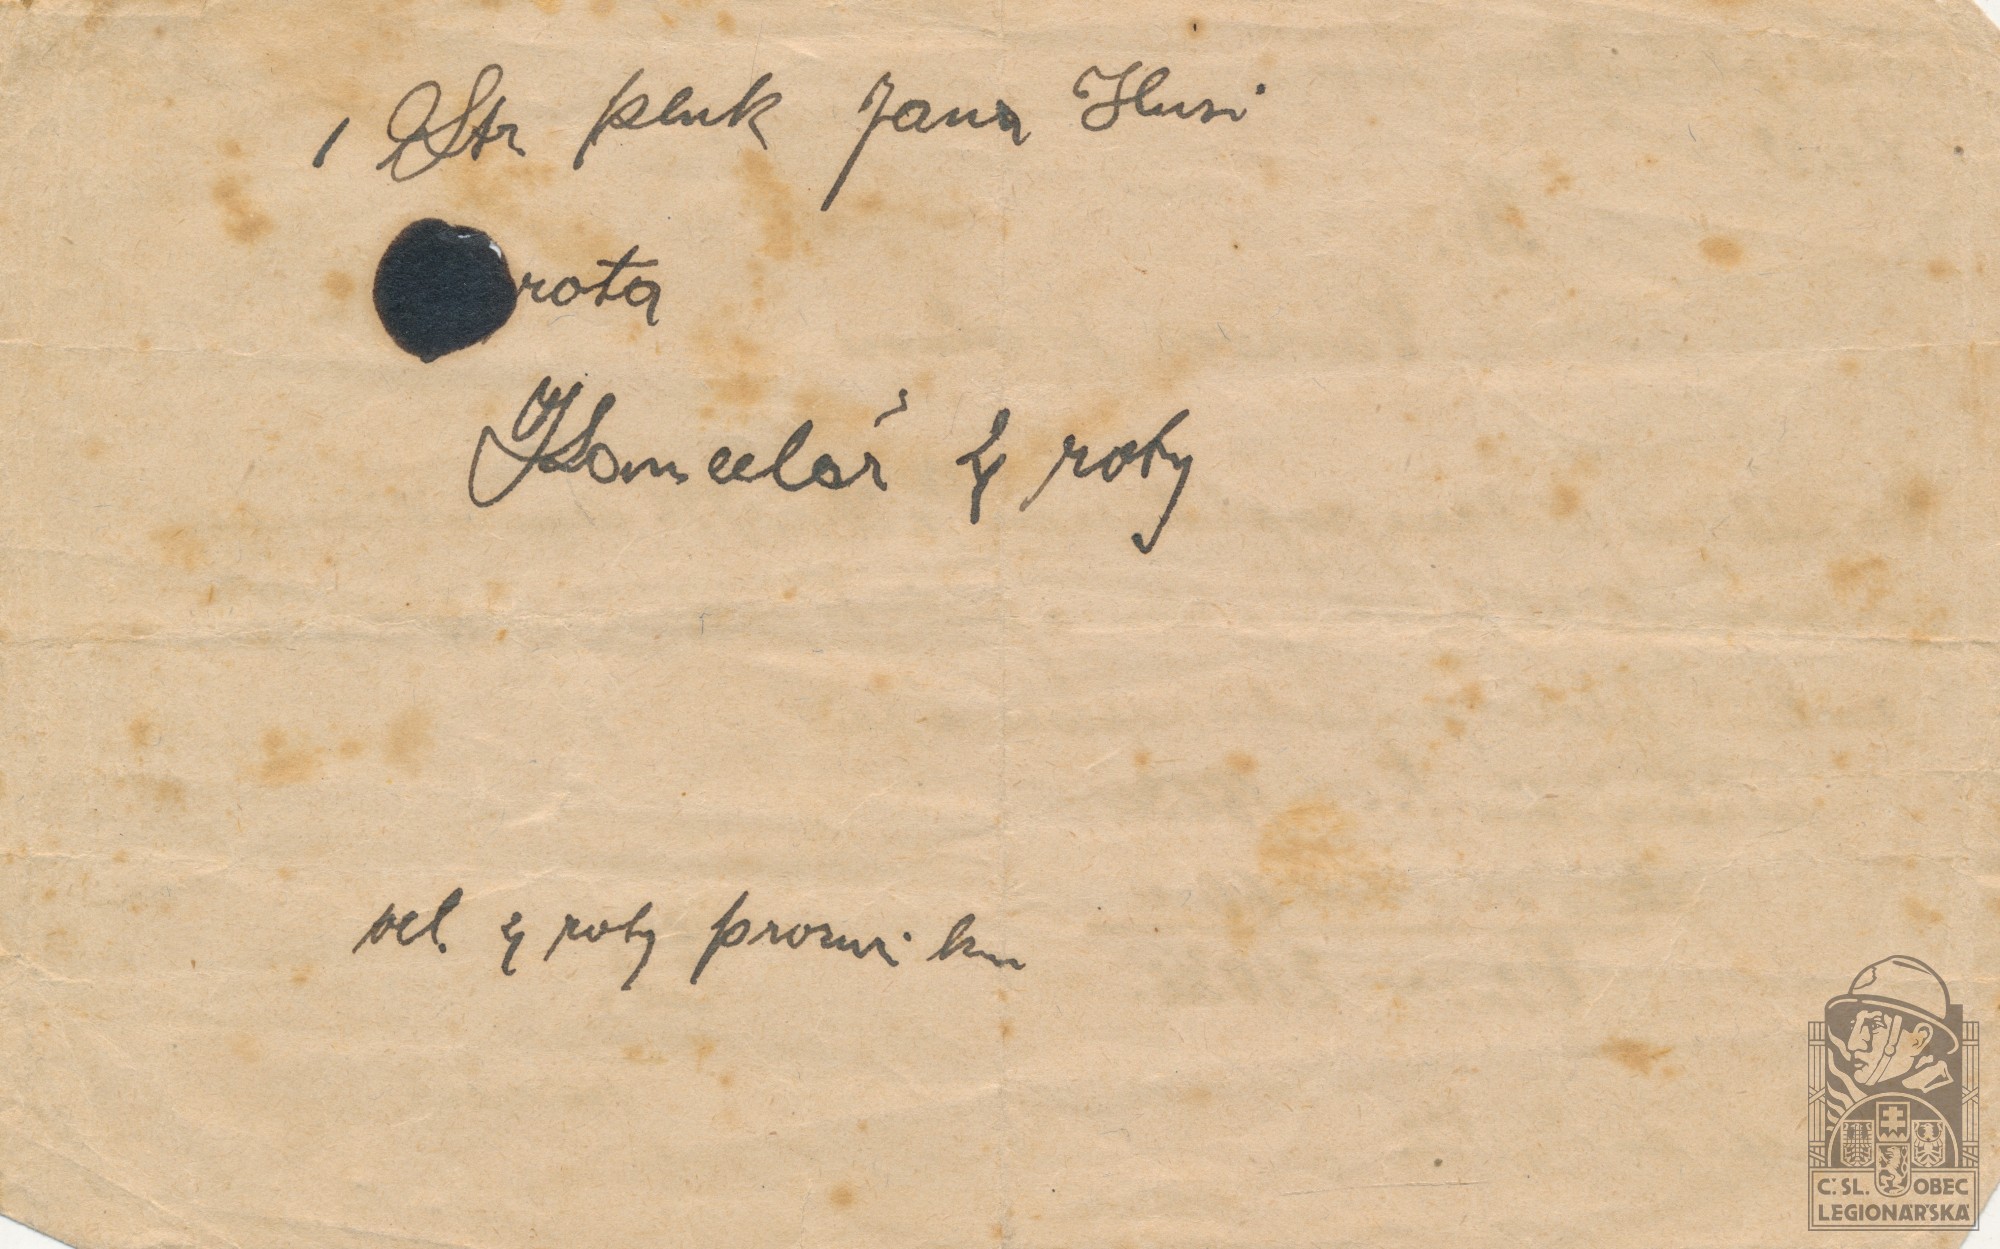 1 Str pluk Jana Husi
rota
Kancelář 4 roty
vel. 4 roty praporčíku
Č.SL. OBEC
LEGIONÁŘSKÁ